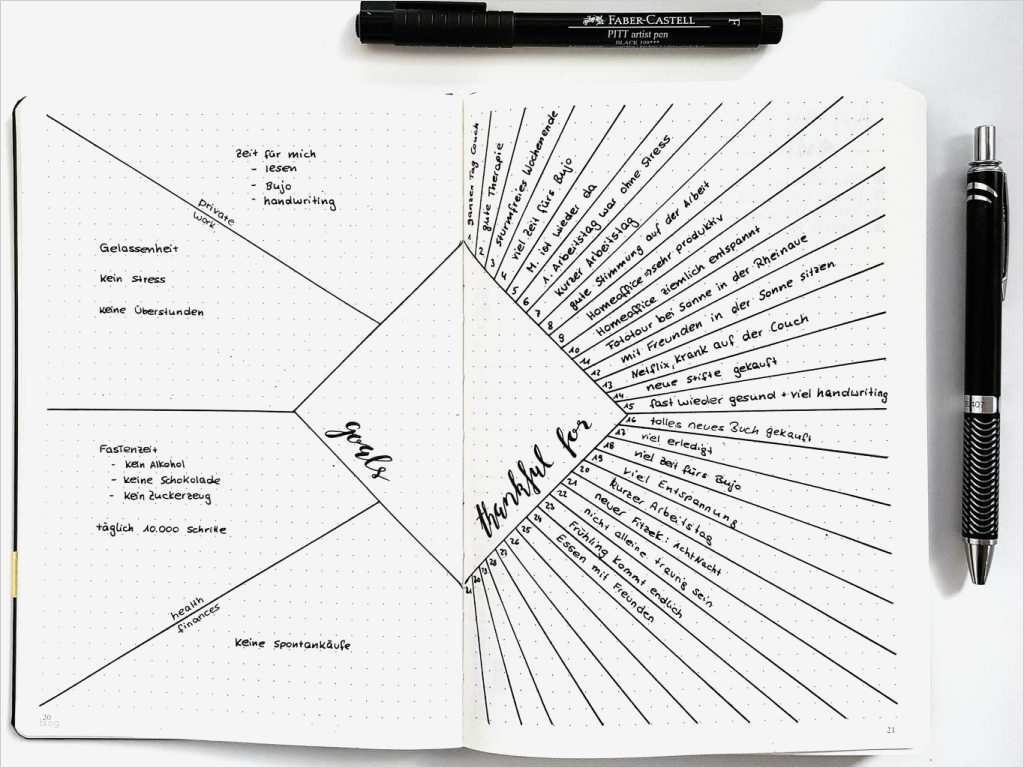 FABER-CASTELL
PITT artist pen
BLACK 199***
F
Zeit für mich
- lesen
- Bujo
- handwriting
private
work
Gelassenheit
kein Stress
keine Überstunden
goals
Fastenzeit
- kein Alkohol
- keine Schokolade
- kein Zuckerzeug
täglich 10.000 Schritte
health
finances
keine Spontankäufe
20
blog
thankful for
1 ganzen Tag Couch
2 gute Therapie
3 sturmfreies Wochenende
4 viel Zeit fürs Bujo
5 M. ist wieder da
6 1. Arbeitstag war ohne Stress
7 kurzer Arbeitstag
8 gute Stimmung auf der Arbeit
9 Homeoffice → sehr produktiv
10 Homeoffice ziemlich entspannt
11 Fototour bei Sonne in der Rheinaue
12 mit Freunden in der Sonne sitzen
13 Netflix, krank auf der Couch
14 neue Stifte gekauft
15 fast wieder gesund + viel handwriting
16 tolles neues Buch gekauft
17 viel erledigt
18 viel Zeit fürs Bujo
19 viel Entspannung
20 kurzer Arbeitstag
21 neuer Fitzek: AchtNacht
22 nicht alleine traurig sein
23 Frühling kommt endlich
24 Essen mit Freunden
25
26
27
28
29
30
31
21
407